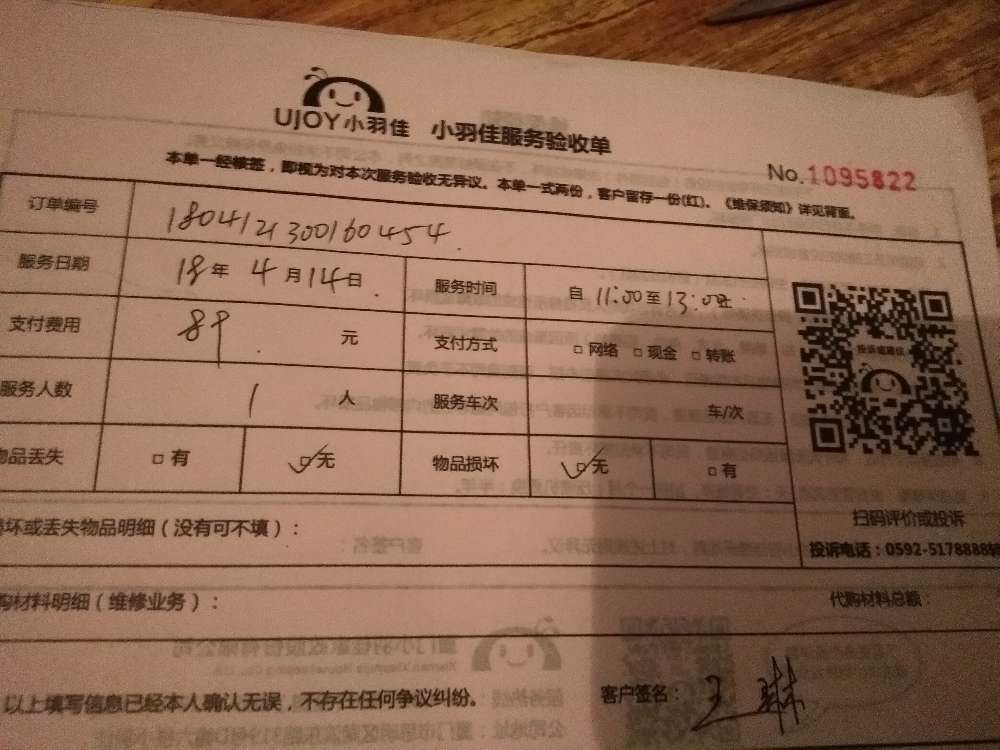 UJOY小羽佳 小羽佳服务验收单
No.1095822
本单一经核签，即视为对本次服务验收无异议。本单一式两份，客户留存一份(红)。《维保须知》详见背面。
订单编号 1804121300160454
服务日期 18年4月14日 服务时间 自 11:00至13:00止
支付费用 89 元 支付方式 □网络 □现金 □转账
服务人数 1 人 服务车次 车/次
物品丢失 □有 ☑无 物品损坏 ☑无 □有
投诉或建议
扫码评价或投诉
投诉电话：0592-5178888转
损坏或丢失物品明细（没有可不填）：
购材料明细（维修业务）： 代购材料总额：
以上填写信息已经本人确认无误，不存在任何争议纠纷。 客户签名：王琳